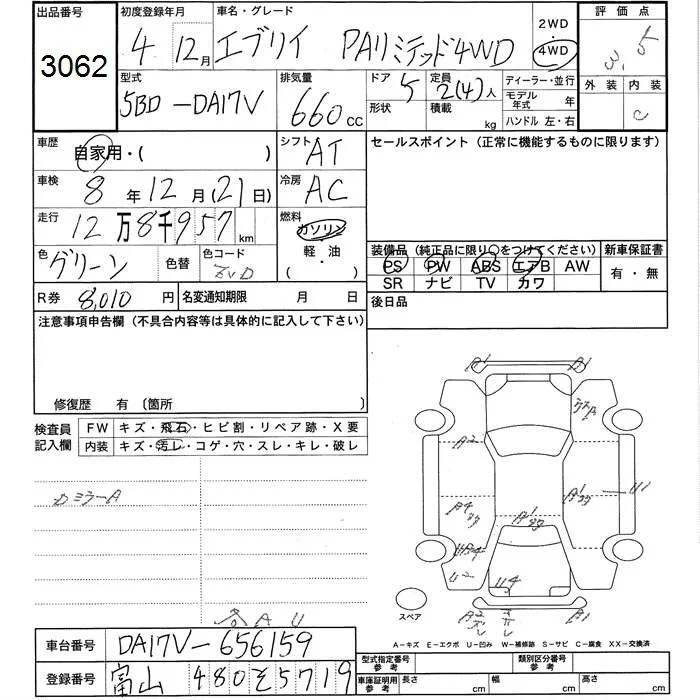 出品番号
3062
初度登録年月
4 12月
車名・グレード
エブリイ PAリミテッド4WD
2WD
4WD
評価点
3.5
型式
5BD-DA17V
排気量
660 CC
ドア 5
形状
定員 2(4)人
積載 kg
ディーラー・並行
モデル年式 年
ハンドル 左・右
外装 内装
C
車歴
自家用・( )
シフト AT
セールスポイント (正常に機能するものに限ります)
車検
8年12月(21日)
冷房 AC
走行
12万8千957km
燃料
ガソリン
軽・油
( )
色
グリーン
色替
色コード
ZVD
装備品 (純正品に限り○をつけてください)
PS PW ABS エアB AW
SR ナビ TV カワ
新車保証書
有・無
R券 8,010円
名変通知期限 月 日
後日品
注意事項申告欄 (不具合内容等は具体的に記入して下さい)
修復歴 有 〔箇所 〕
検査員記入欄
FW キズ・飛石・ヒビ割・リペア跡・X要
内装 キズ・汚レ・コゲ・穴・スレ・キレ・破レ
ミラーA
A1
A1
A2
U1
U2
U4
A2
B1
スペア
A U
A-キズ E-エクボ U-凹み W-補修跡 S-サビ C-腐食 XX-交換済
車台番号 DA17V-656159
登録番号 富山 480 そ 5719
型式指定番号 参考
類別区分番号 参考
車庫証明用 参考
長さ cm
幅 cm
高さ cm